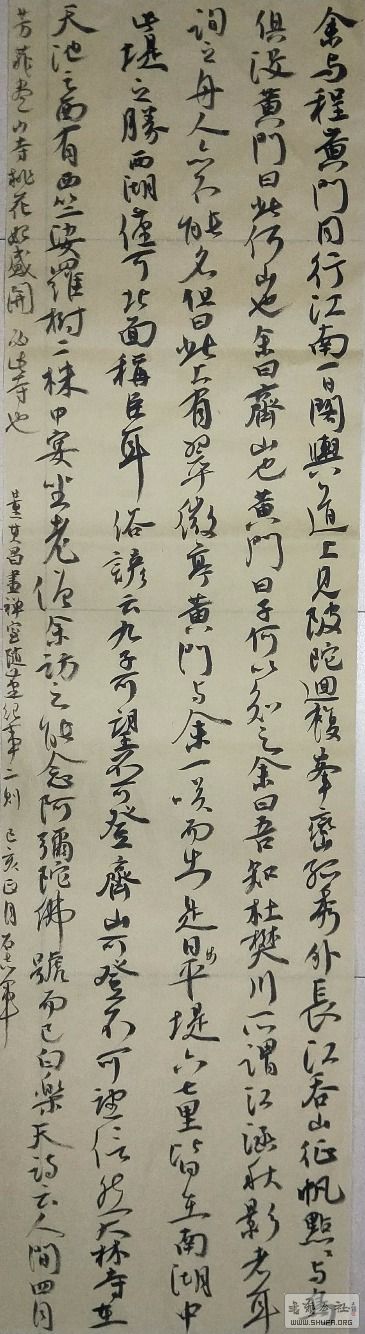 余与程黄門同行江南一日閣輿道上見陂陀迴複峯巒孤秀外長江吞山征帆點々与鳥
俱没黄門曰此何山也余曰齊山也黄門曰子何以知之余曰吾知杜樊川所謂江涵秋影者耳
詢之舟人亦不能名但曰此上有翠微亭黄門与余一咲而出是日步平堤六七里皆在南湖中
此堤之勝西湖僅可北面稱臣耳 俗諺云九子可望不可登齊山可登不可望信然大林寺在
天池之西有西竺娑羅樹二株中宴坐老僧余訪之能念阿彌陀佛號而已白樂天詩云人間四月
芳菲盡山寺桃花始盛開 必此寺也 董其昌畫禪室隨筆紀事二則 己亥正月
WWW.SHUFA.ORG